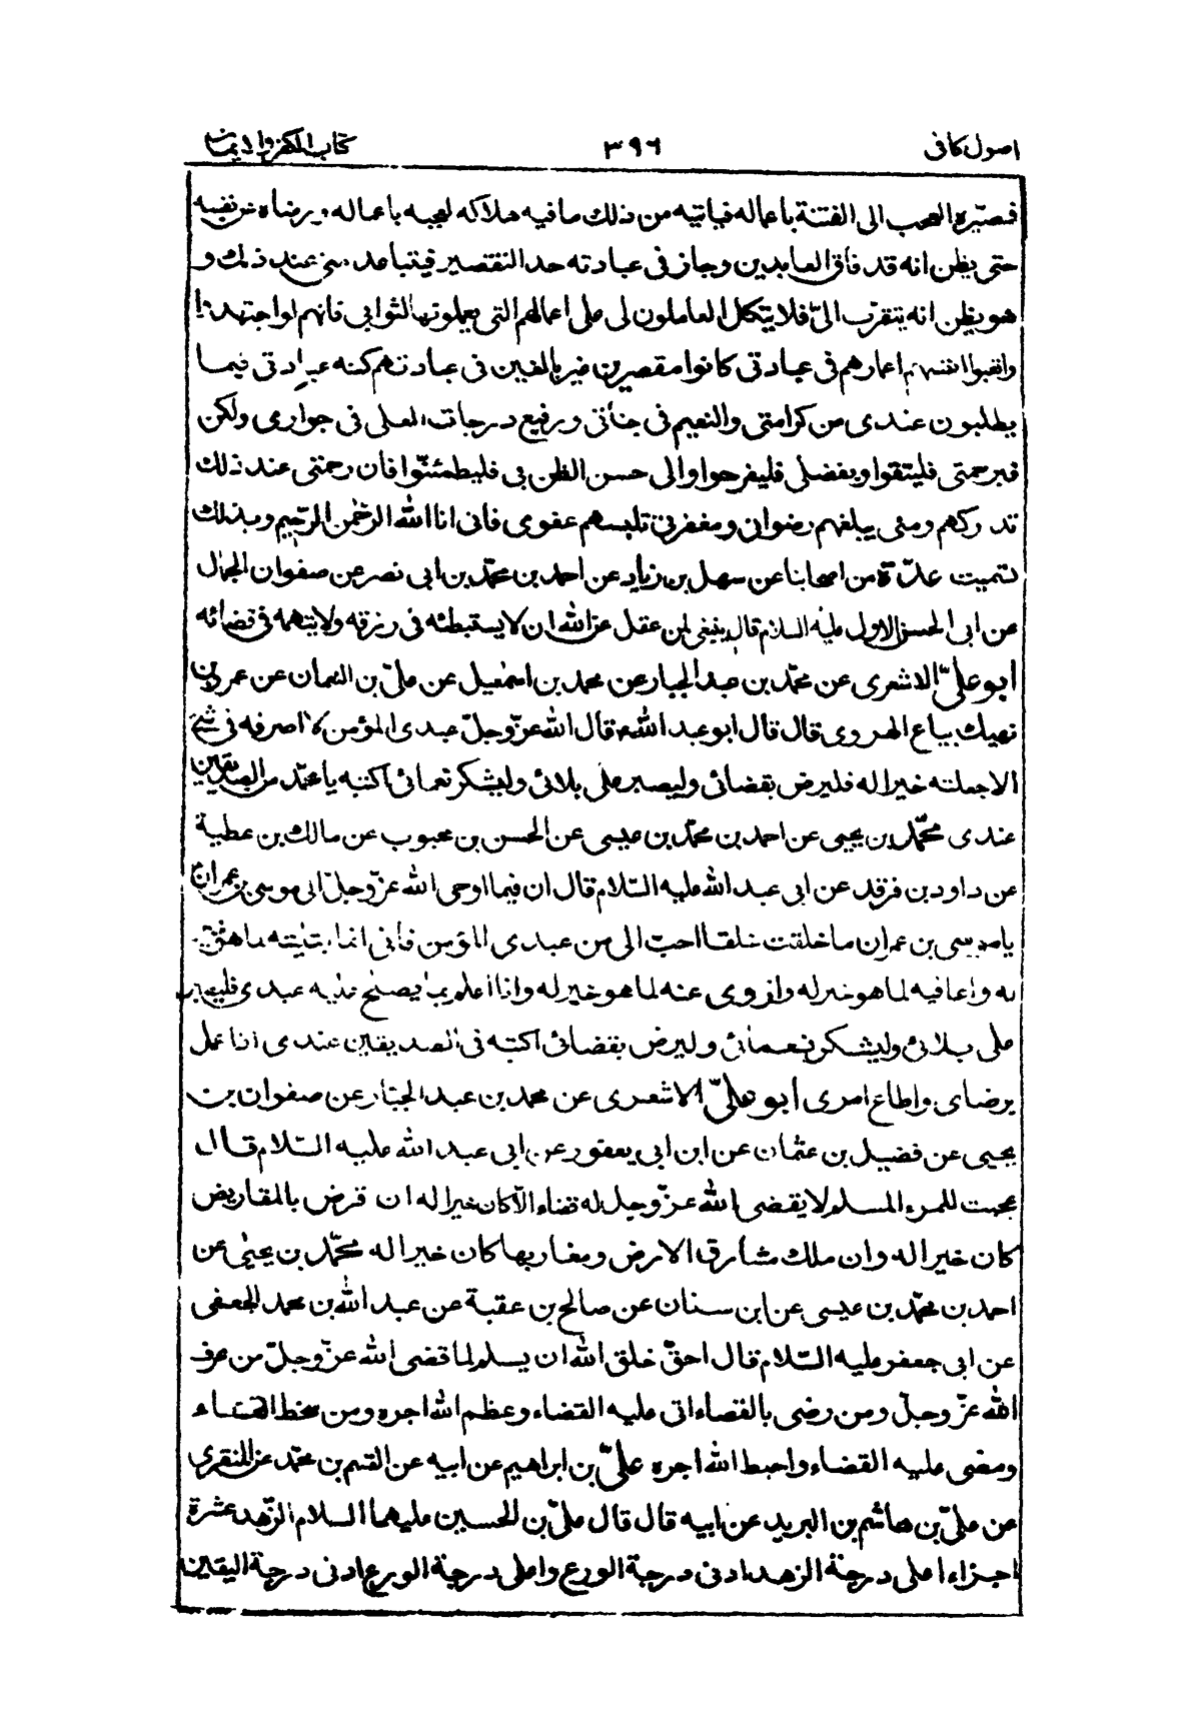 اصول كافى ٣٩٦ كتاب الكفر والايمان
فيصيره العجب الى الفتنة باعماله فياتيه من ذلك ما فيه هلاكه لعجبه باعماله ورضاه عن نفسه
حتى يظن انه قد فاق العابدين وجاز فى عبادته حد التقصير فيتباعد منى عند ذلك و
هو يظن انه يتقرب الىّ فلا يتكل العاملون لى على اعمالهم التى يعملونها لثوابى فانهم لو اجتهدوا
واتعبوا انفسهم اعمارهم فى عبادتى كانوا مقصرين غير بالغين فى عبادتهم كنه عبادتى فيما
يطلبون عندى من كرامتى والنعيم فى جناتى ورفيع درجات العلى فى جوارى ولكن
فبرحمتى فليثقوا وبفضلى فليفرحوا والى حسن الظن بى فليطمئنّوا فان رحمتى عند ذلك
تدركهم ومنى يبلغهم رضوانى ومغفرتى تلبسهم عفوى فانى انا الله الرحمن الرّحيم وبذلك
تسميت عدّة من اصحابنا عن سهل بن زياد عن احمد بن محمّد بن ابى نصر عن صفوان الجمال
عن ابى الحسن الاول عليه السلام قال ينبغى لمن عقل عن الله ان لا يستبطئه فى رزقه ولا يتهمه فى قضائه
ابو علىّ الاشعرى عن محمّد بن عبد الجبار عن محمد بن اسمعيل عن علىّ بن النعمان عن عمرو بن
نهيك بياع الهروى قال قال ابو عبد الله ع قال الله عزّ وجلّ عبدى المؤمن لا اصرفه فى شئ
الا جعلته خيرا له فليرض بقضائى وليصبر على بلائى وليشكر نعمائى اكتبه يا محمّد من الصديقين
عندى محمّد بن يحيى عن احمد بن محمّد بن عيسى عن الحسن بن محبوب عن مالك بن عطية
عن داود بن فرقد عن ابى عبد الله عليه السّلام قال ان فيما اوحى الله عزّ وجلّ الى موسى بن عمران
يا موسى بن عمران ما خلقت خلقا احبّ الى من عبدى المؤمن فانى انما ابتليته لما هو خير
له واعافيه لما هو خير له وازوى عنه لما هو خير له وانا اعلم بما يصلح عليه عبدى فليصبر
على بلائى وليشكر نعمائى وليرض بقضائى اكتبه فى الصديقين عندى اذا عمل
برضاى واطاع امرى ابو علىّ الاشعرى عن محمد بن عبد الجبّار عن صفوان بن
يحيى عن فضيل بن عثمان عن ابن ابى يعفور عن ابى عبد الله عليه السّلام قال
عجبت للمرء المسلم لا يقضى الله عزّ وجل له قضاء الّا كان خيرا له ان قرض بالمقاريض
كان خيرا له وان ملك مشارق الارض ومغاربها كان خيرا له محمّد بن يحيى عن
احمد بن محمّد بن عيسى عن ابن سنان عن صالح بن عقبة عن عبد الله بن محمد الجعفى
عن ابى جعفر عليه السّلام قال احقّ خلق الله ان يسلم لما قضى الله عزّ وجلّ من عرف
الله عزّ وجلّ ومن رضى بالقضاء اتى عليه القضاء وعظم الله اجره ومن سخط القضاء
ومضى عليه القضاء واحبط الله اجره علىّ بن ابراهيم عن ابيه عن القسم بن محمّد عن المنقرى
عن علىّ بن هاشم بن البريد عن ابيه قال قال علىّ بن الحسين عليهما السلام الزّهد عشرة
اجزاء اعلى درجة الزهد ادنى درجة الورع واعلى درجة الورع ادنى درجة اليقين